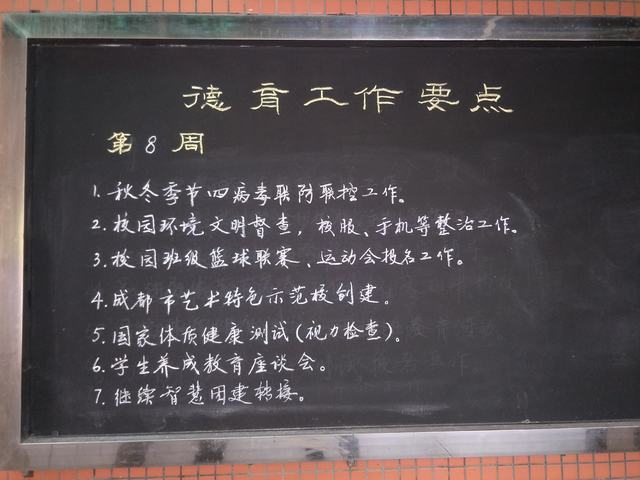 德育工作要点
第8周
1. 秋冬季节四病毒联防联控工作。
2. 校园环境文明督查，校服、手机等整治工作。
3. 校园班级篮球联赛、运动会报名工作。
4. 成都市艺术特色示范校创建。
5. 国家体质健康测试(视力检查)。
6. 学生养成教育座谈会。
7. 继续智慧团建转接。